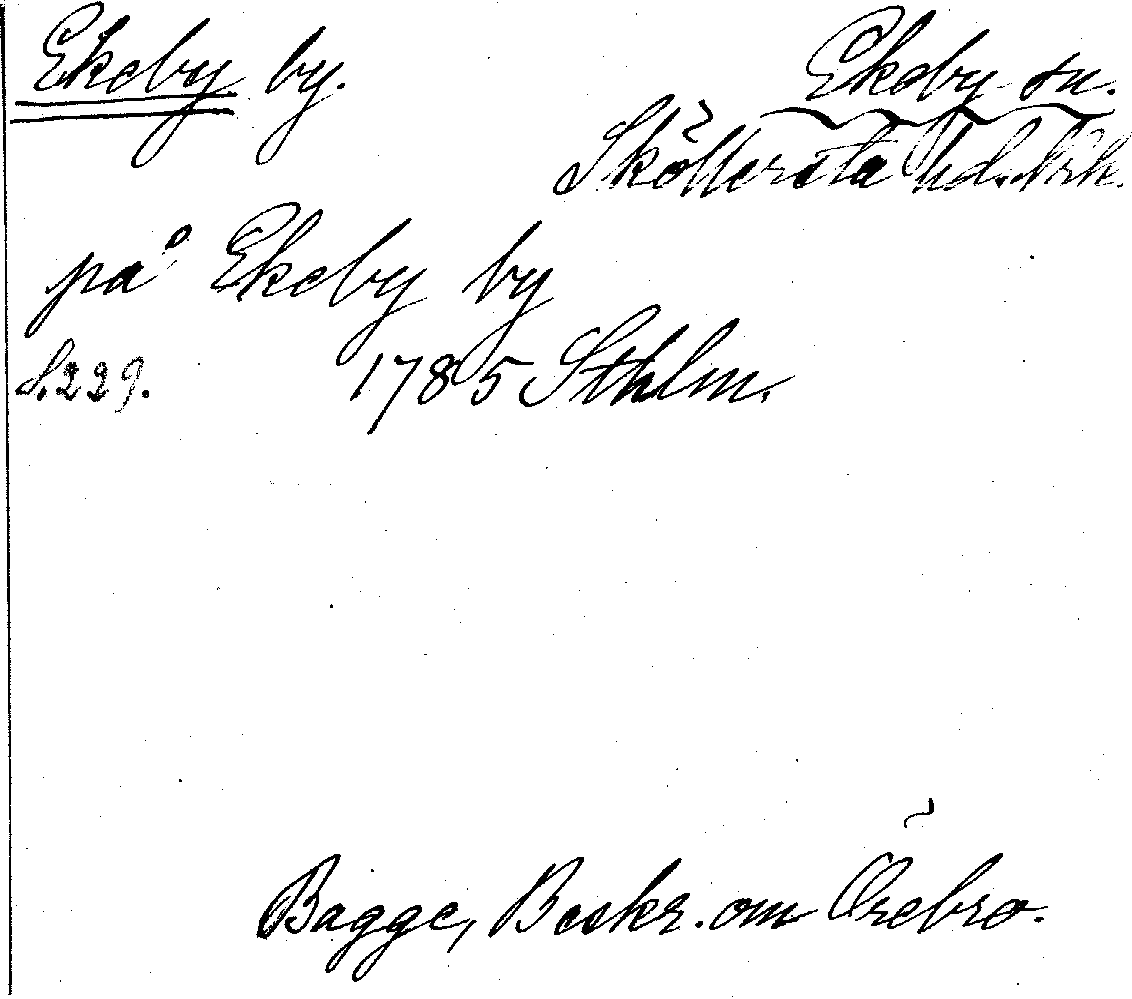 Ekeby by.
Ekeby sn.
Sköllersta hd. Nrk.
på Ekeby by
S. 229.
1785 Sthlm.
Bagge, Beskr. om Örebro.